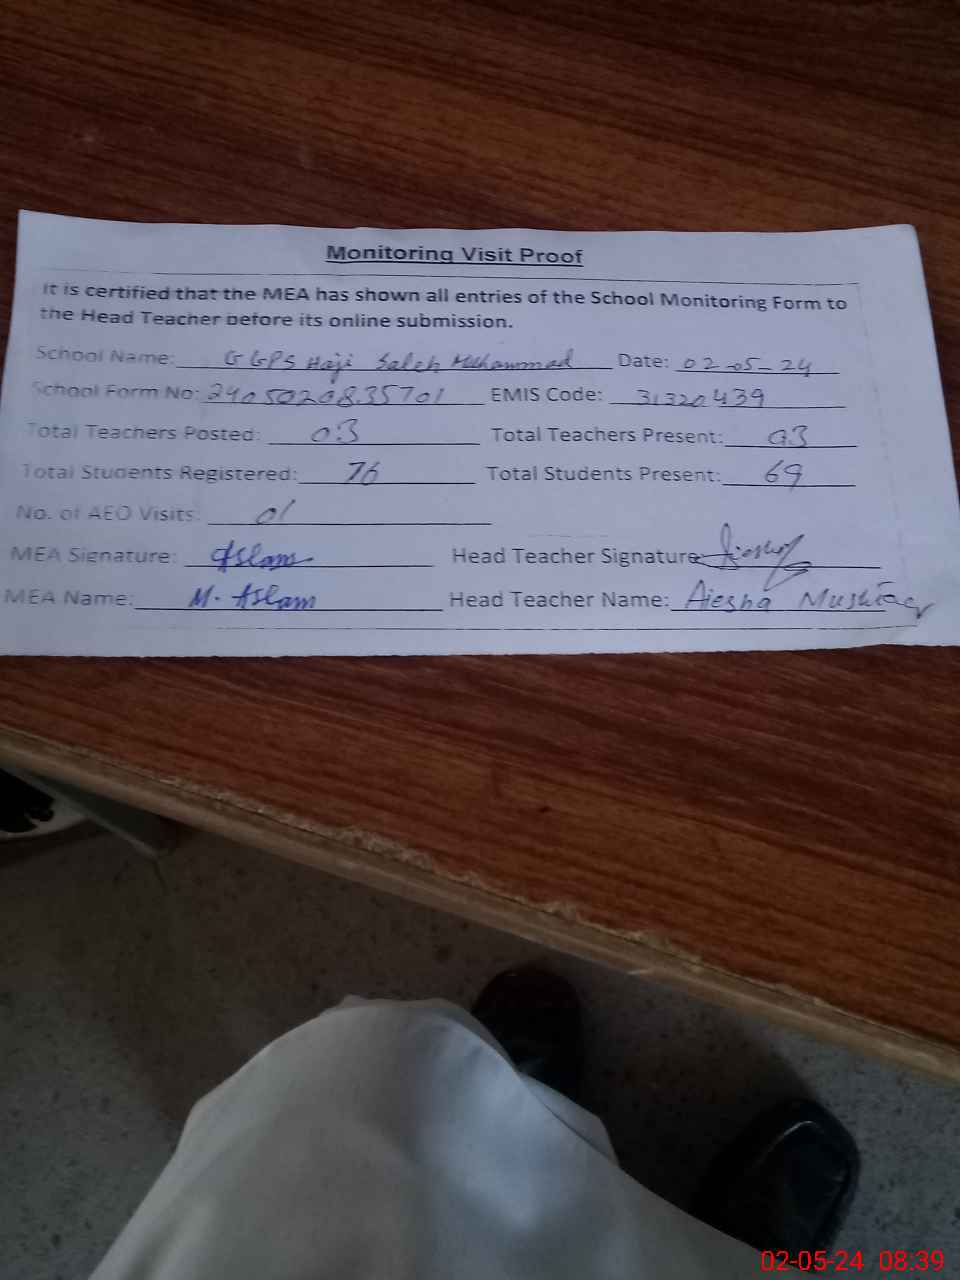 Monitoring Visit Proof
It is certified that the MEA has shown all entries of the School Monitoring Form to
the Head Teacher before its online submission.
School Name: GGPS Haji Saleh Muhammad Date: 02-05-24
School Form No: 2405020835701 EMIS Code: 31320439
Total Teachers Posted: 03 Total Teachers Present: 03
Total Students Registered: 76 Total Students Present: 69
No. of AEO Visits: 01
MEA Signature: Aslam Head Teacher Signature:
MEA Name: M. Aslam Head Teacher Name: Aiesha
02-05-24 08:39